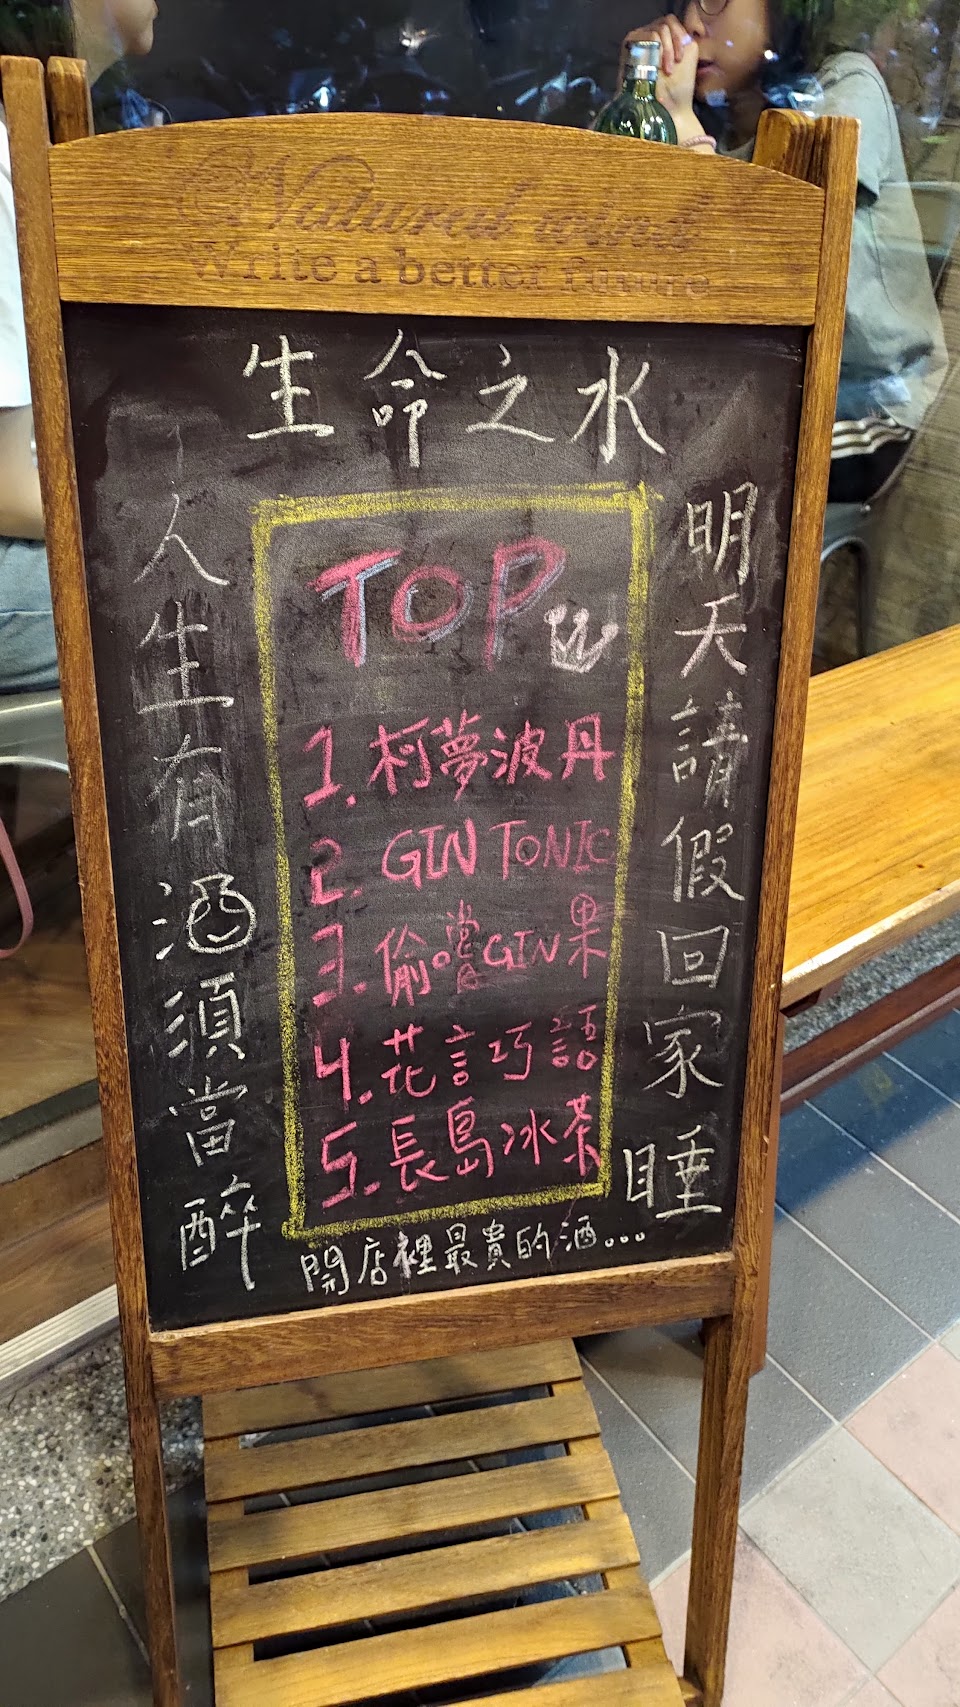 Natural wind
Write a better future
生命之水
明天請假回家睡
人生有酒須當醉
TOP
1. 柯夢波丹
2. GIN TONIC
3. 偷嚐GIN果
4. 花言巧語
5. 長島冰茶
開店裡最貴的酒...